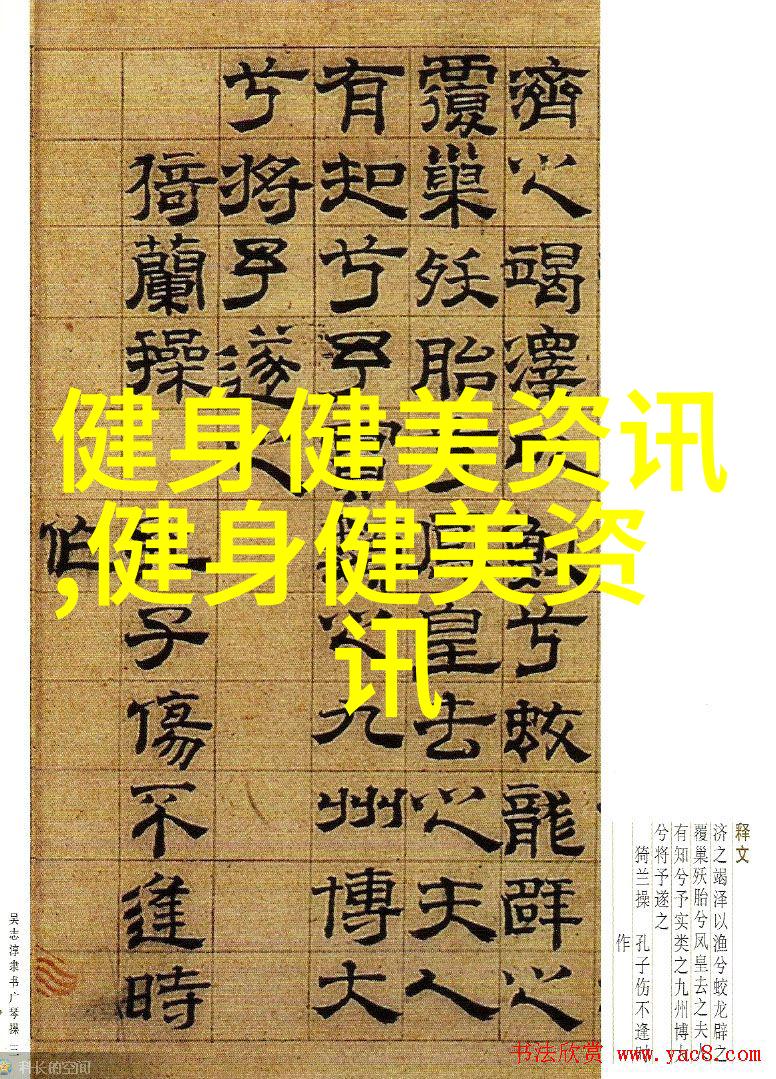 濟之竭澤以漁兮蛟龍辟之
覆巢殀胎兮鳳皇去之夫人
有知兮予實類之九州博大
兮將予遂之
猗蘭操 孔子傷不逢時
作
健身健美资讯
,健身健美资
讯
释文
济之竭泽以渔兮蛟龙辟之
覆巢殀胎兮凤皇去之夫人
有知兮予实类之九州博
兮将予遂之
猗兰操 孔子伤不逢时
作
吴志淳隶书广琴操 三
科长的空间
书法欣赏 www.yac8.com